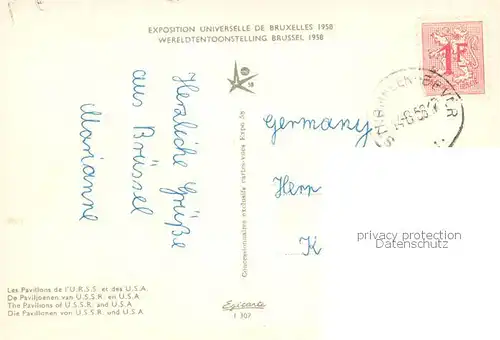 EXPOSITION UNIVERSELLE DE BRUXELLES 1958
WERELDTENTOONSTELLING BRUSSEL 1958
1F
Herzliche Grüße
aus Brüssel
Marianne
Germany
Herrn
K
Concessionnaires exclusifs cartes-vues Expo 58
privacy protection
Datenschutz
Les Pavillons de l'U.R.S.S. et des U.S.A.
De Paviljoenen van U.S.S.R. en U.S.A.
The Pavilions of U.S.S.R. and U.S.A.
Die Pavillonen von U.S.S.R. und U.S.A.
Egicarte
1 307